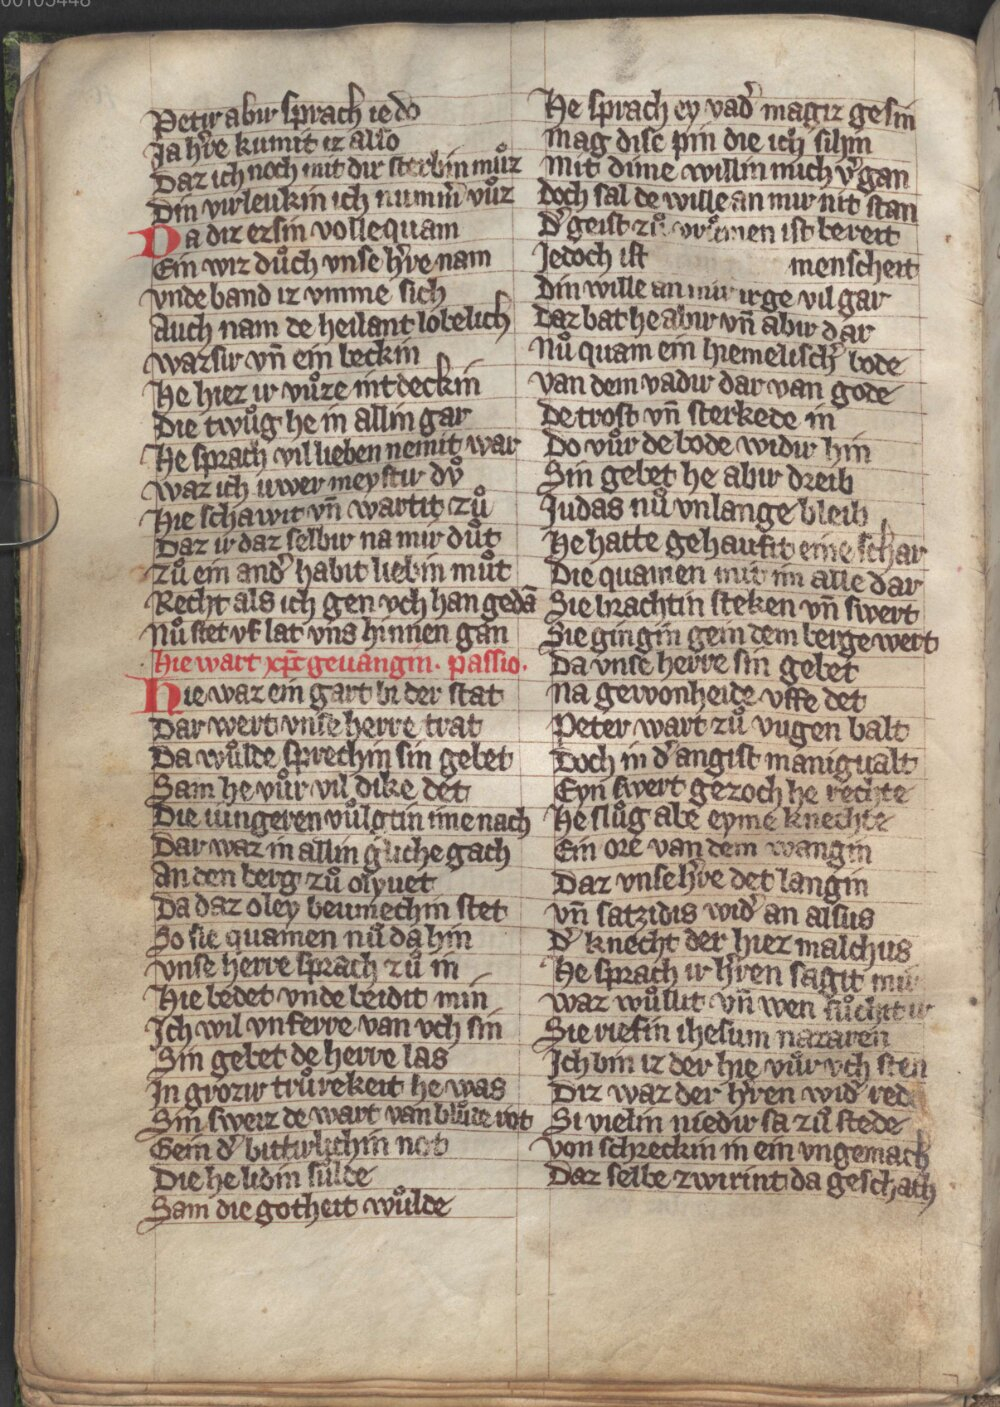 Petir abir sprach iedo
Ja h're kumit iz also
Daz ich noch mit dir sterbin můz
Din virleukin ich numm' vůz
Da diz ezsin volle quam
Ein wiz důch vnse h're nam
vnde band iz vmme sich
Auch nam de heilant lobelich
wazsir vn̄ ein beckin
He hiez ir vůze intdeckin
Die twůg he in allin gar
He sprach vil lieben nemit war
waz ich uwer meystir dů
Hie schawit vn̄ wartit zů
Daz ir daz selbir na mir důt
zů ein and' habit liebin můt
Recht als ich gen vch han gedā
Nů stet vf lat vns hinnen gan
Hie wart xp̄c geuangin. passio.
Hie waz ein gart bi der stat
Dar wert vnse herre trat
Da wůlde sprechin sin gebet
Sam he vůr vil dike det
Die iungeren vůlgtin ime nach
Dar waz in allin gliche gach
An den berg zů olyuet
Da daz oley beumechin stet
So sie quamen nů da hin
vnse herre sprach zů in
Hie bedet vnde beidit min
Ich wil vnferre van vch sin
Sin gebet de herre las
In grozir trůrekeit he was
Sin sweiz de wart van blůde rot
Gein d' bittirlichin not
Die he lidin sulde
Sam die gotheit wůlde
He sprach ey vad' magiz gesin
Mag dise pin die ich silhin
Mit dime willin mich v'gan
Doch sal de wille an mir nit stan
D' geist zů vrůmen ist bereit
Jedoch ist menscheit
Din wille an mir irge vil gar
Daz bat he abir vn̄ abir dar
Nů quam ein hiemelisch' bode
van dem vadir dar van gode
De trost vn̄ sterkede in
Do vůr de bode widir hin
Sin gebet he abir dreib
Judas nů vnlange bleib
He hatte gehaufit eine schar
Die quamen mit im alle dar
Sie brachtin steken vn̄ swert
Sie gingin gein dem berge wert
Da vnse herre sin gebet
Na gewonheide vffe det
Peter wart zů vugen balt
Doch in d' angist manigualt
Eyn swert gezoch he rechte
He slůg abe eyme knechte
Ein ore van dem wangin
Daz vnse h're det langin
vn̄ satzidis wid' an alsus
D' knecht der hiez malchus
He sprach ir h'ren sagit mir
waz wůllit vn̄ wen sůchit ir
Sie riefin ihesum nazaren
Ich bin iz der hie vůr vch sten
Diz waz der h'ren wid' rede
Si vielin niedir sa zů stede
von schreckin in ein vngemach
Daz selbe zwirint da geschach